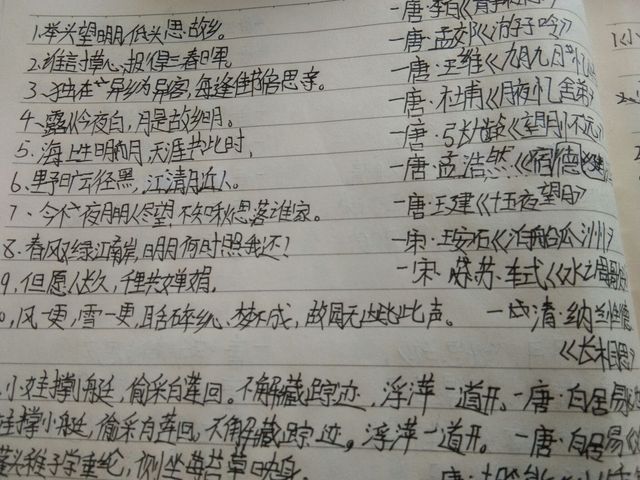 1.举头望明月,低头思故乡。 —唐·李白《静夜思
2.谁言寸草心,报得三春晖。 —唐·孟郊《游子吟》
3、独在异乡为异客,每逢佳节倍思亲。 —唐·王维《九月九日忆
4、露从今夜白,月是故乡明。 —唐·杜甫《月夜忆舍弟》
5、海上生明月,天涯共此时, —唐·张九龄《望月怀远》
6、野旷云径黑,江清月近人。 —唐·孟浩然《宿
7、今夜月明人尽望,不知秋思落谁家。 —唐·王建《十五夜望月》
8.春风又绿江南岸,明月何时照我还? —宋·王安石《泊船瓜洲》
9,但愿人长久,千里共婵娟, —宋·苏轼《水
风一更,雪一更,聒碎乡心梦不成,故园无此声。 —清·纳兰性德
《长相思》
小娃撑小艇,偷采白莲回。不解藏踪迹,浮萍一道开、—唐·白居易
娃撑小艇,偷采白莲回,不解藏踪迹,浮萍一道开。 —唐·白居易
蓬头稚子学垂纶,侧坐莓苔草映身。 唐·胡令能